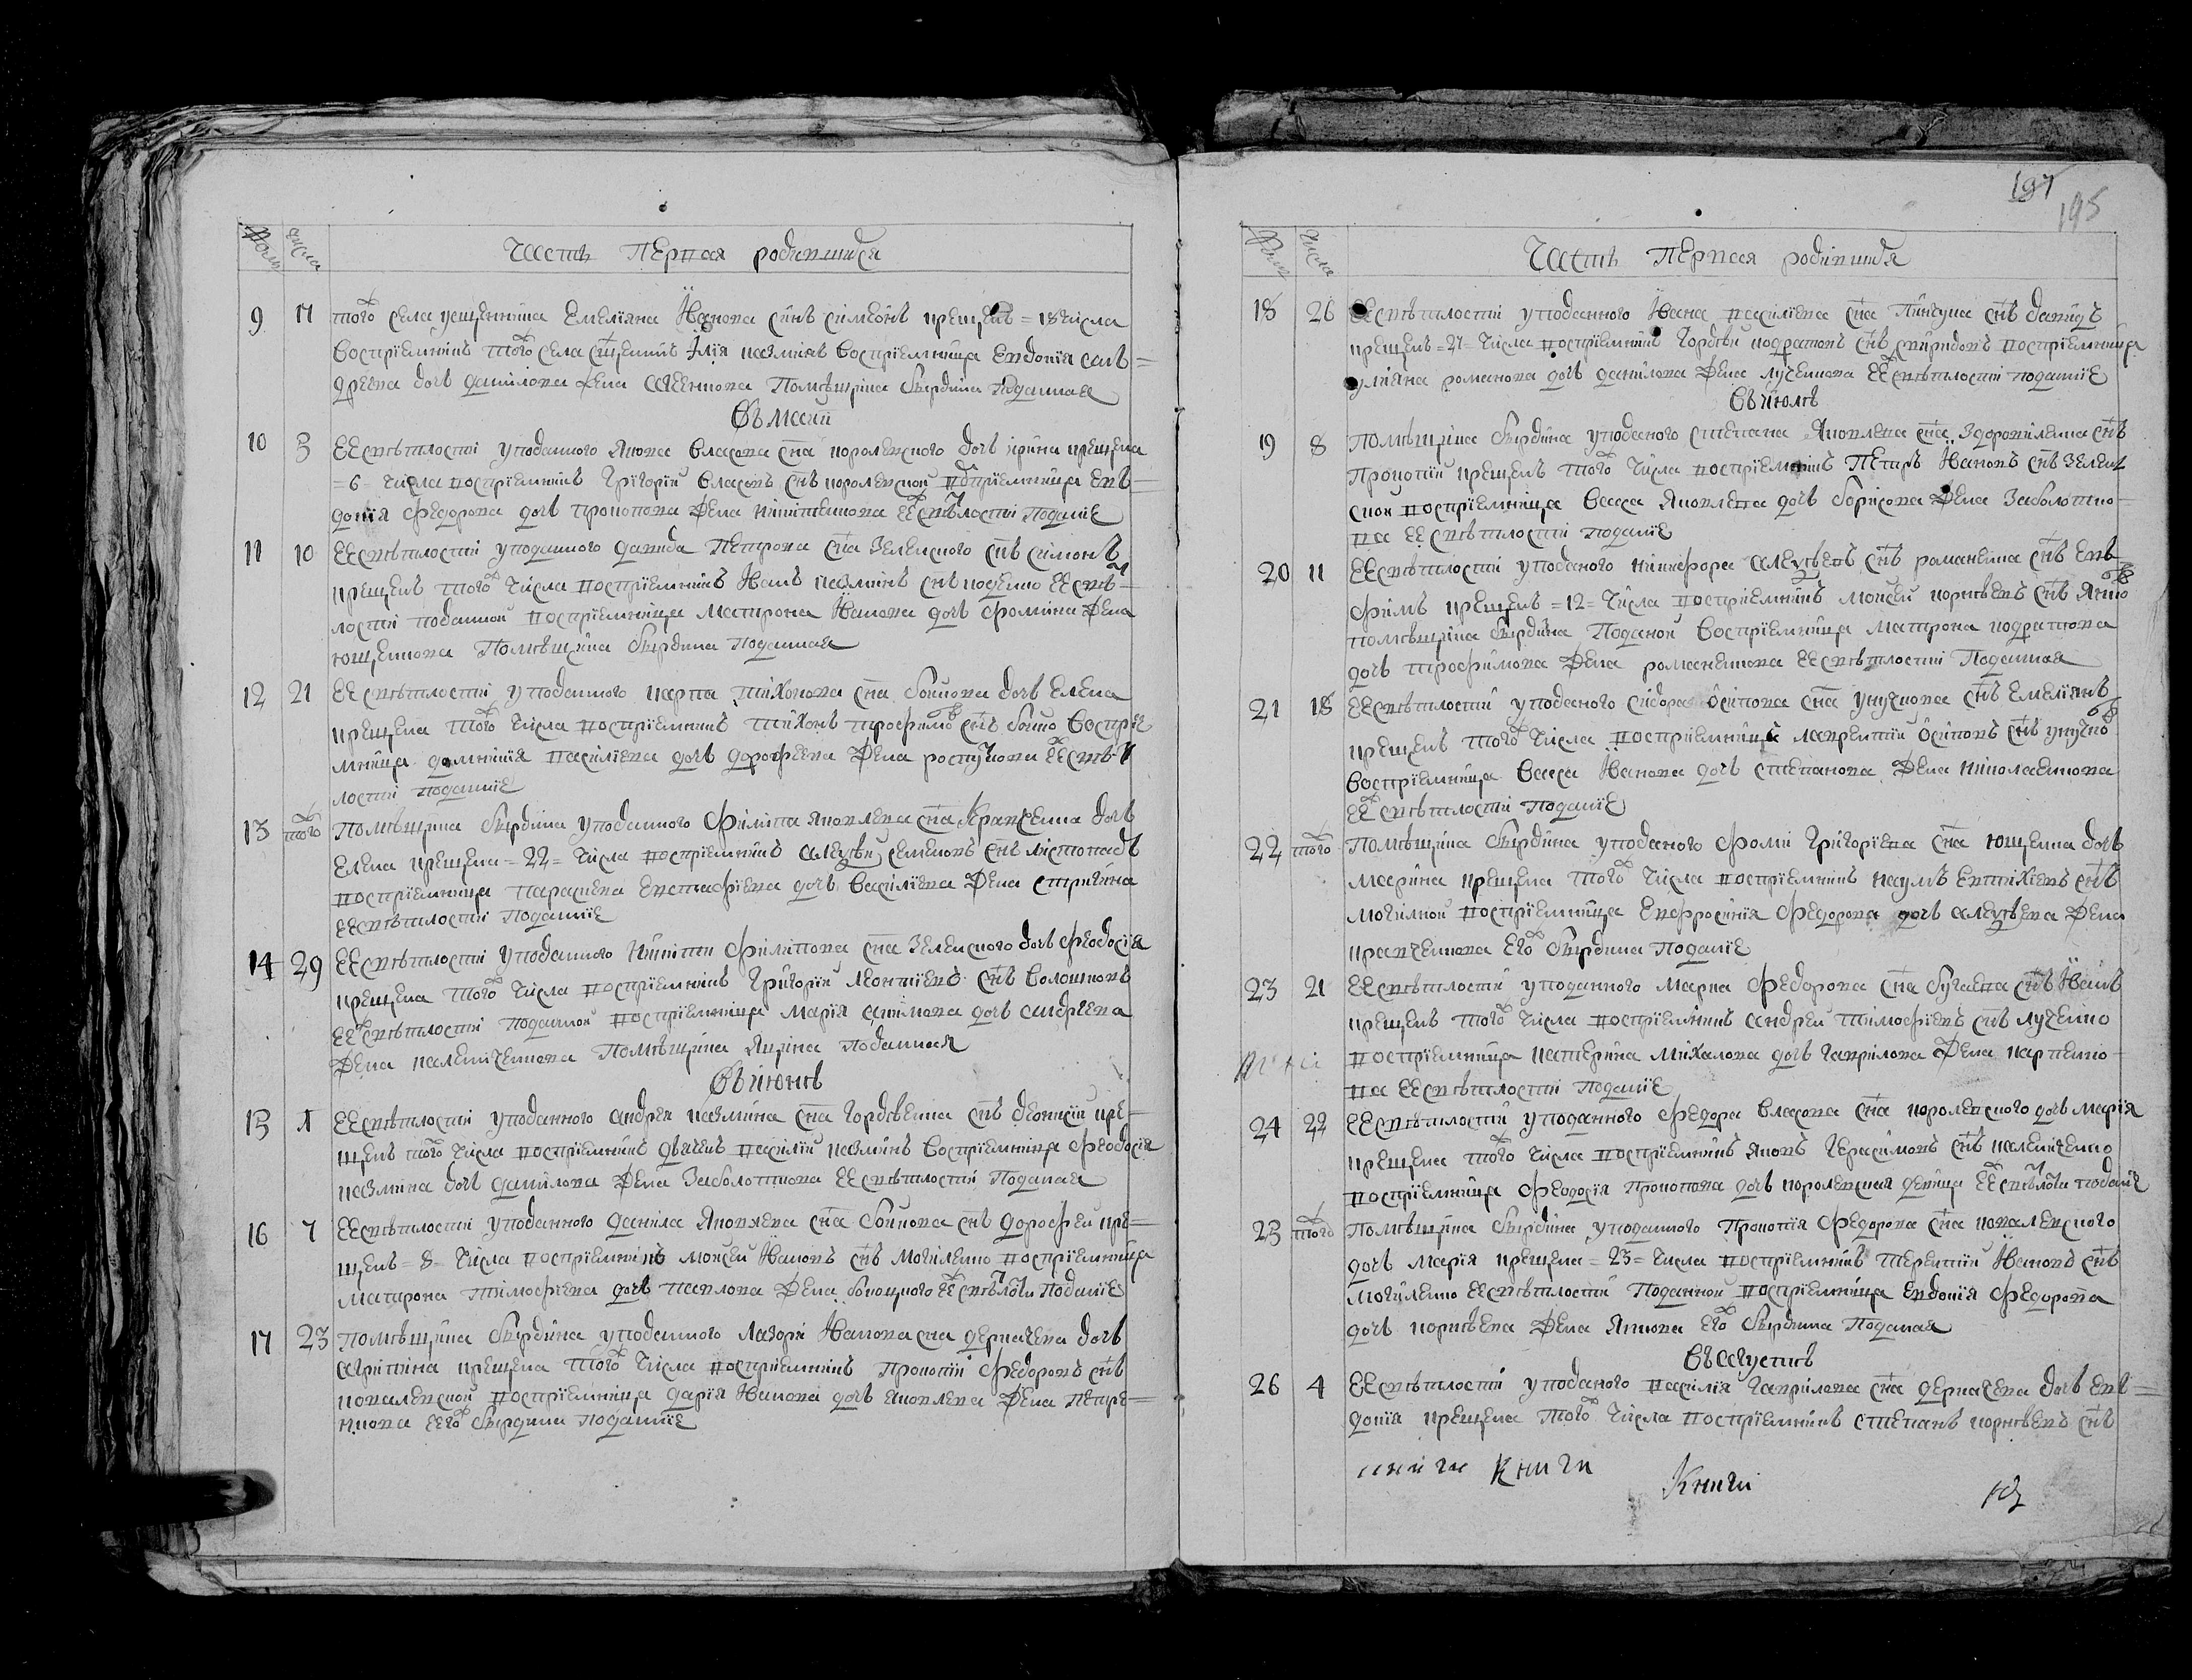 Часть первая родившихся
9 17 того села священника Емелїана Иванова сынъ симеонъ крещенъ = 18 числа
восприемникъ того села сщенникъ Илїя казминъ восприемница Евдокїя сав=
помѣщика бырдина подданная
въ маий
10 5 ЕЕ свѣтлости у подданного Якова власова сна королевского дочь ирина крещена
= 6 числа восприемникъ Григорїй власовъ снъ королевской восприемница Евъ=
докїя Федорова дочь прокопова жена ЕЕ свѣтлости подданїе
11 10 ЕЕ свѣтлости у подданного давида Петрова сна Зеленского снъ симонъ
крещенъ того числа восприемникъ Иванъ казминъ снъ ЕЕ свѣт=
лости подданной восприемница матрона Иванова дочь фомина жена
ющенкова помѣщика бырдина подданная
12 21 ЕЕ свѣтлости у подданного карпа тихонова сна бойкова дочь Елена
крещена того числа восприемникъ тихонъ трофимовъ снъ бойко восприе
мница домникїя василїева дочь дорофеева жена ЕЕ свѣт
лости подданїе
13 того помѣщика бырдина у подданного Филипа яковлева сна кравченка дочь
Елена крещена = 22 = числа восприемникъ алеѯѣй семеновъ снъ листопадъ
восприемница параскева Евстафїева дочь василїева жена
ЕЕ свѣтлости подданїе
14 29 ЕЕ свѣтлости у подданного Никити филипова сна Зеленского дочь феодосїя
крещена того числа восприемникъ Григорїй леонтїевъ снъ волошковъ
ЕЕ свѣтлости подданной восприемница марїя дочь андреева
жена калениченкова помѣщика подданная
въ июнѣ
15 1 ЕЕ свѣтлости у подданного андрея казмина сна гордѣенка снъ деонисїй кре=
щенъ того числа восприемникъ дьячекъ василїй казминъ восприемница феодосїя
казмина дочь данилова жена Заболотнова ЕЕ свѣтлости подданая
16 7 ЕЕ свѣтлости у подданного данила Яковлева сна бойкова снъ дорофей кре=
щенъ = 8 = числа восприемникъ моисей Ивановъ снъ могиленко восприемница
матрона тимофїева дочь павлова жена ЕЕ свѣтлости подданїе
17 23 помѣщика бырдина у подданного лазоря Иванова сна деркачева дочь
агрипина крещена того числа восприемникъ прокопїй федоровъ снъ
ковалевской восприемница дарїя Иванова дочь яковлева жена петре=
нкова его бырдина подданїе
197
195
Часть первая родившихся
18 26 ЕЕ свѣтлости у подданного Ивана василїева сна снъ давидъ
крещенъ = 27 = числа восприемникъ гордѣй кодратовъ снъ свиридовъ восприемница
улїяна романова дочь данилова жена лученкова ЕЕ свѣтлости подданїе
въ июлѣ
19 8 помѣщика бырдина у подданого степана яковлева сна здоровиленка снъ
прокопїй крещенъ того числа восприемникъ петръ Ивановъ снъ зелен
ской восприемница васса яковлева дочь борисова жена заболотно=
ва ЕЕ свѣтлости подданїе
20 11 ЕЕ свѣтлости у подданого никифора алеѯѣевъ снъ романенка снъ Евъ
фимъ крещенъ = 12 = числа восприемникъ моисей корнѣевъ снъ Яко
помѣщика бырдина поданой восприемница матрона кодратова
дочь трофимова жена романенкова ЕЕ свѣтлости поданая
21 18 ЕЕ свѣтлости у подданого сидора осипова сна унучкова снъ Емелїянъ
крещенъ того числа восприемникъ лаврентїй осиповъ снъ унучко
восприемница васса Иванова дочь степанова жена николаенкова
ЕЕ свѣтлости поданїе
22 того помѣщика бырдина у подданого фоми григорїева сна ющенка дочь
марина крещена того числа восприемникъ наумъ Евтихїевъ снъ
могилной восприемница Евфросинїя федорова дочь алеѯѣева жена
кравченкова его бырдина поданїе
23 21 ЕЕ свѣтлости у подданного марка федорова сна бугаева снъ Иванъ
крещенъ того числа восприемникъ андрей тимофїевъ снъ лученко
восприемница катерина михалова дочь гаврилова жена карпенко=
ва ЕЕ свѣтлости поданїе
24 22 ЕЕ свѣтлости у подданного федора власова сна королевского дочь марїя
крещена того числа восприемникъ яковъ герасимовъ снъ калениченко
восприемница феодосїя прокопова дочь королевская девица ЕЕ свѣтлости поданїе
25 того помѣщика бырдина у подданного прокопїя федорова сна ковалевского
дочь марїя крещена = 23 = числа восприемникъ терентїй Ивановъ снъ
могиленко ЕЕ свѣтлости поданной восприемница Евдокїя федорова
дочь корнѣева жена Яцкова его бырдина поданая
въ августѣ
26 4 ЕЕ свѣтлости у подданого василїя гаврилова сна деркачева дочь Евъ=
докїя крещена того числа восприемникъ степанъ корнѣевъ снъ
книги книги
Книги